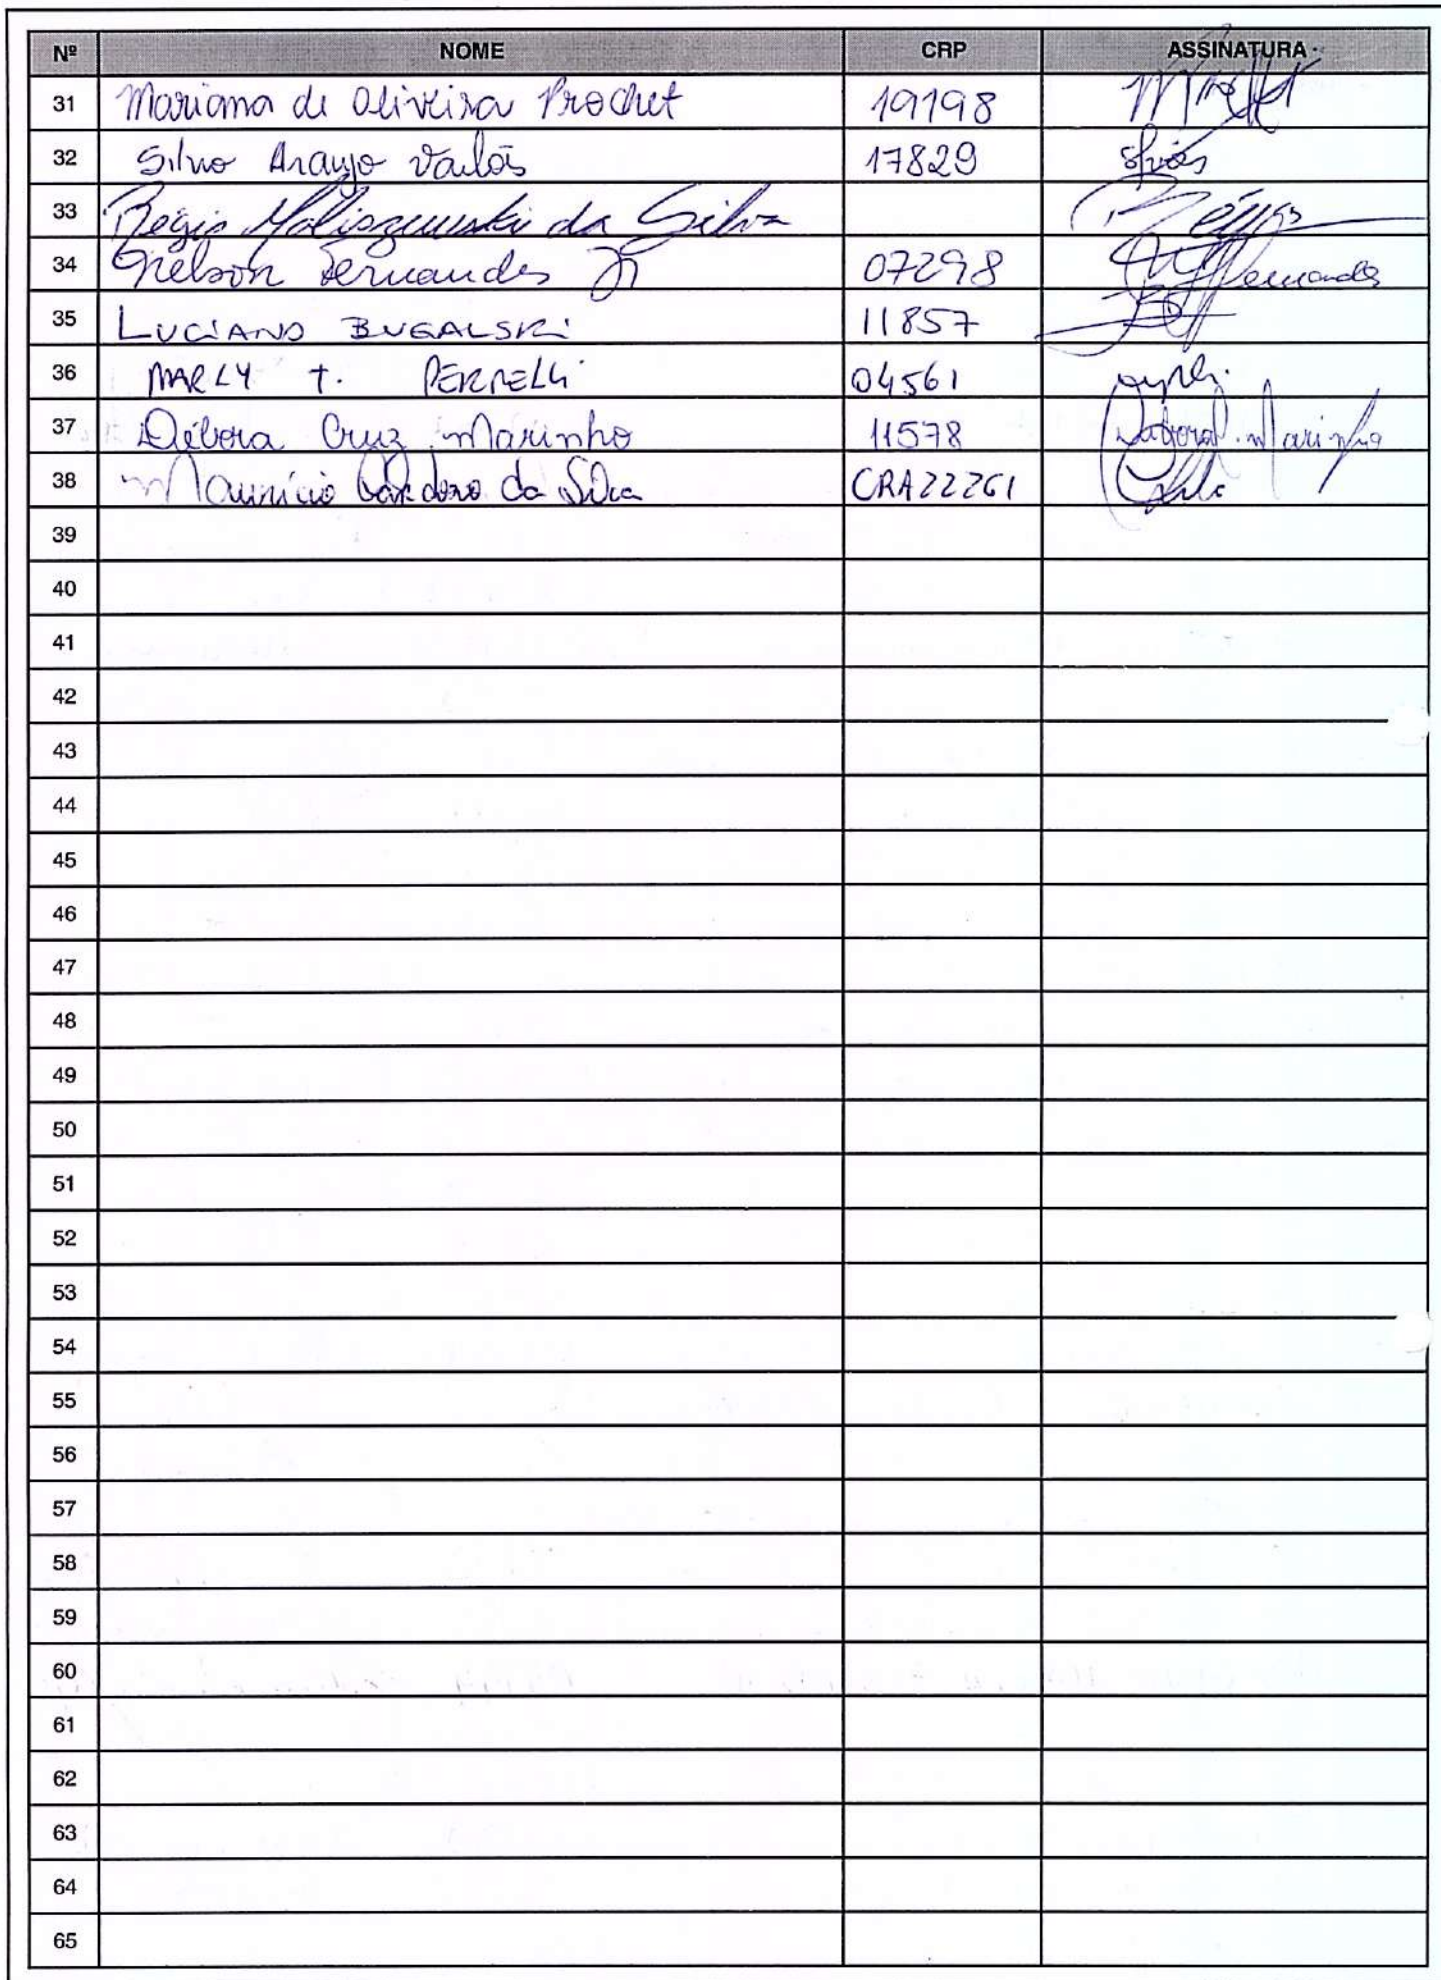 Nº NOME CRP ASSINATURA
31 Mariana de Oliveira Prochet 19198
32 Silvio Araujo 17829
33 Regis Maliszewski da Silva Régis
34 Nelson Fernandes Jr 07298 Fernandes
35 LUCIANO BUGALSKI 11857
36 MARLY T. PERRELLI 04561
37 Débora Cruz Marinho 11578 Debora Marinho
38 Maurício Cardozo da Silva CRA22261
39
40
41
42
43
44
45
46
47
48
49
50
51
52
53
54
55
56
57
58
59
60
61
62
63
64
65